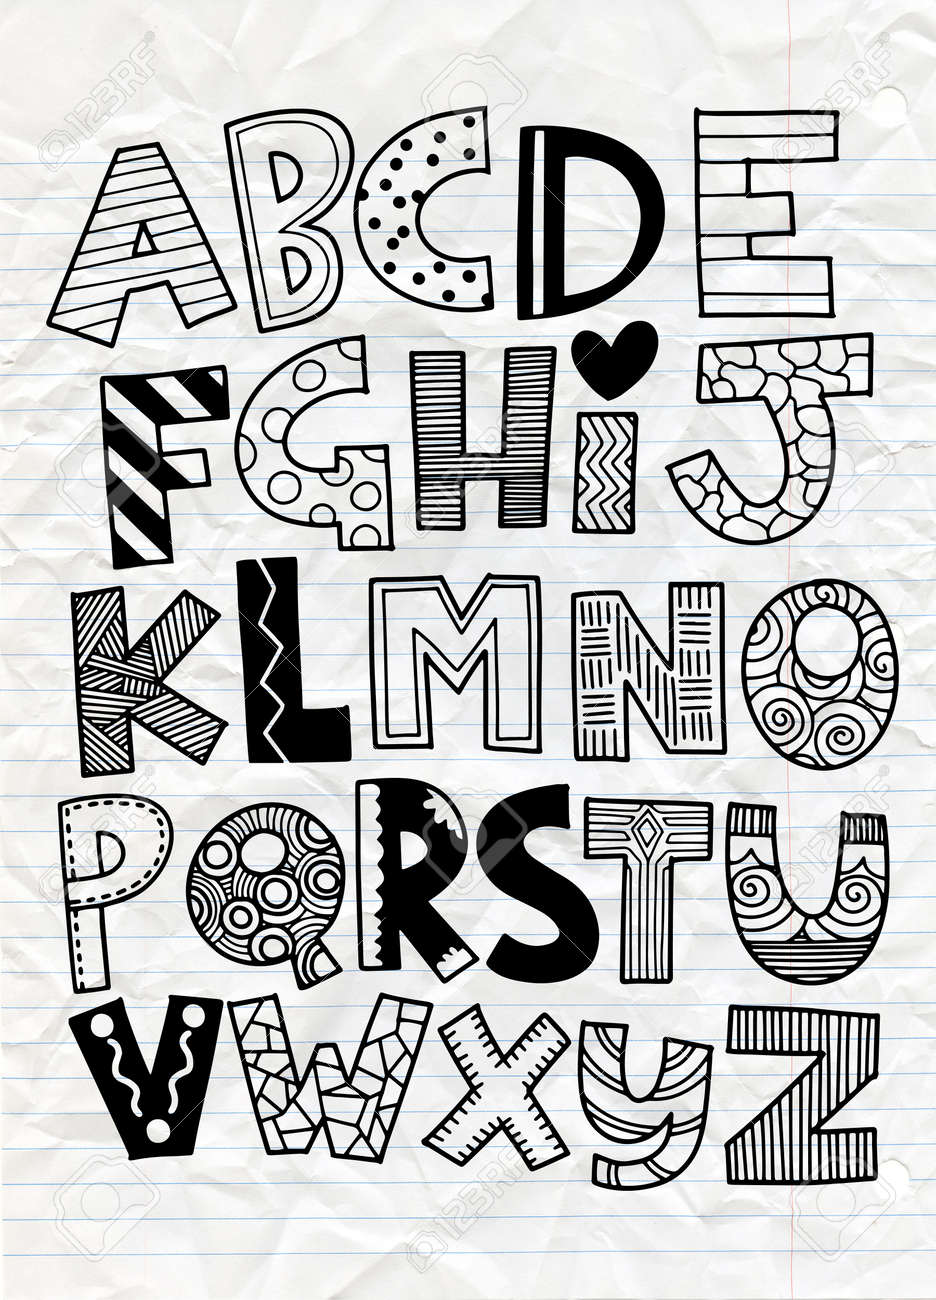 ABCDE
FGHiJ
KLMNO
PQRSTU
VWXyZ
123RF